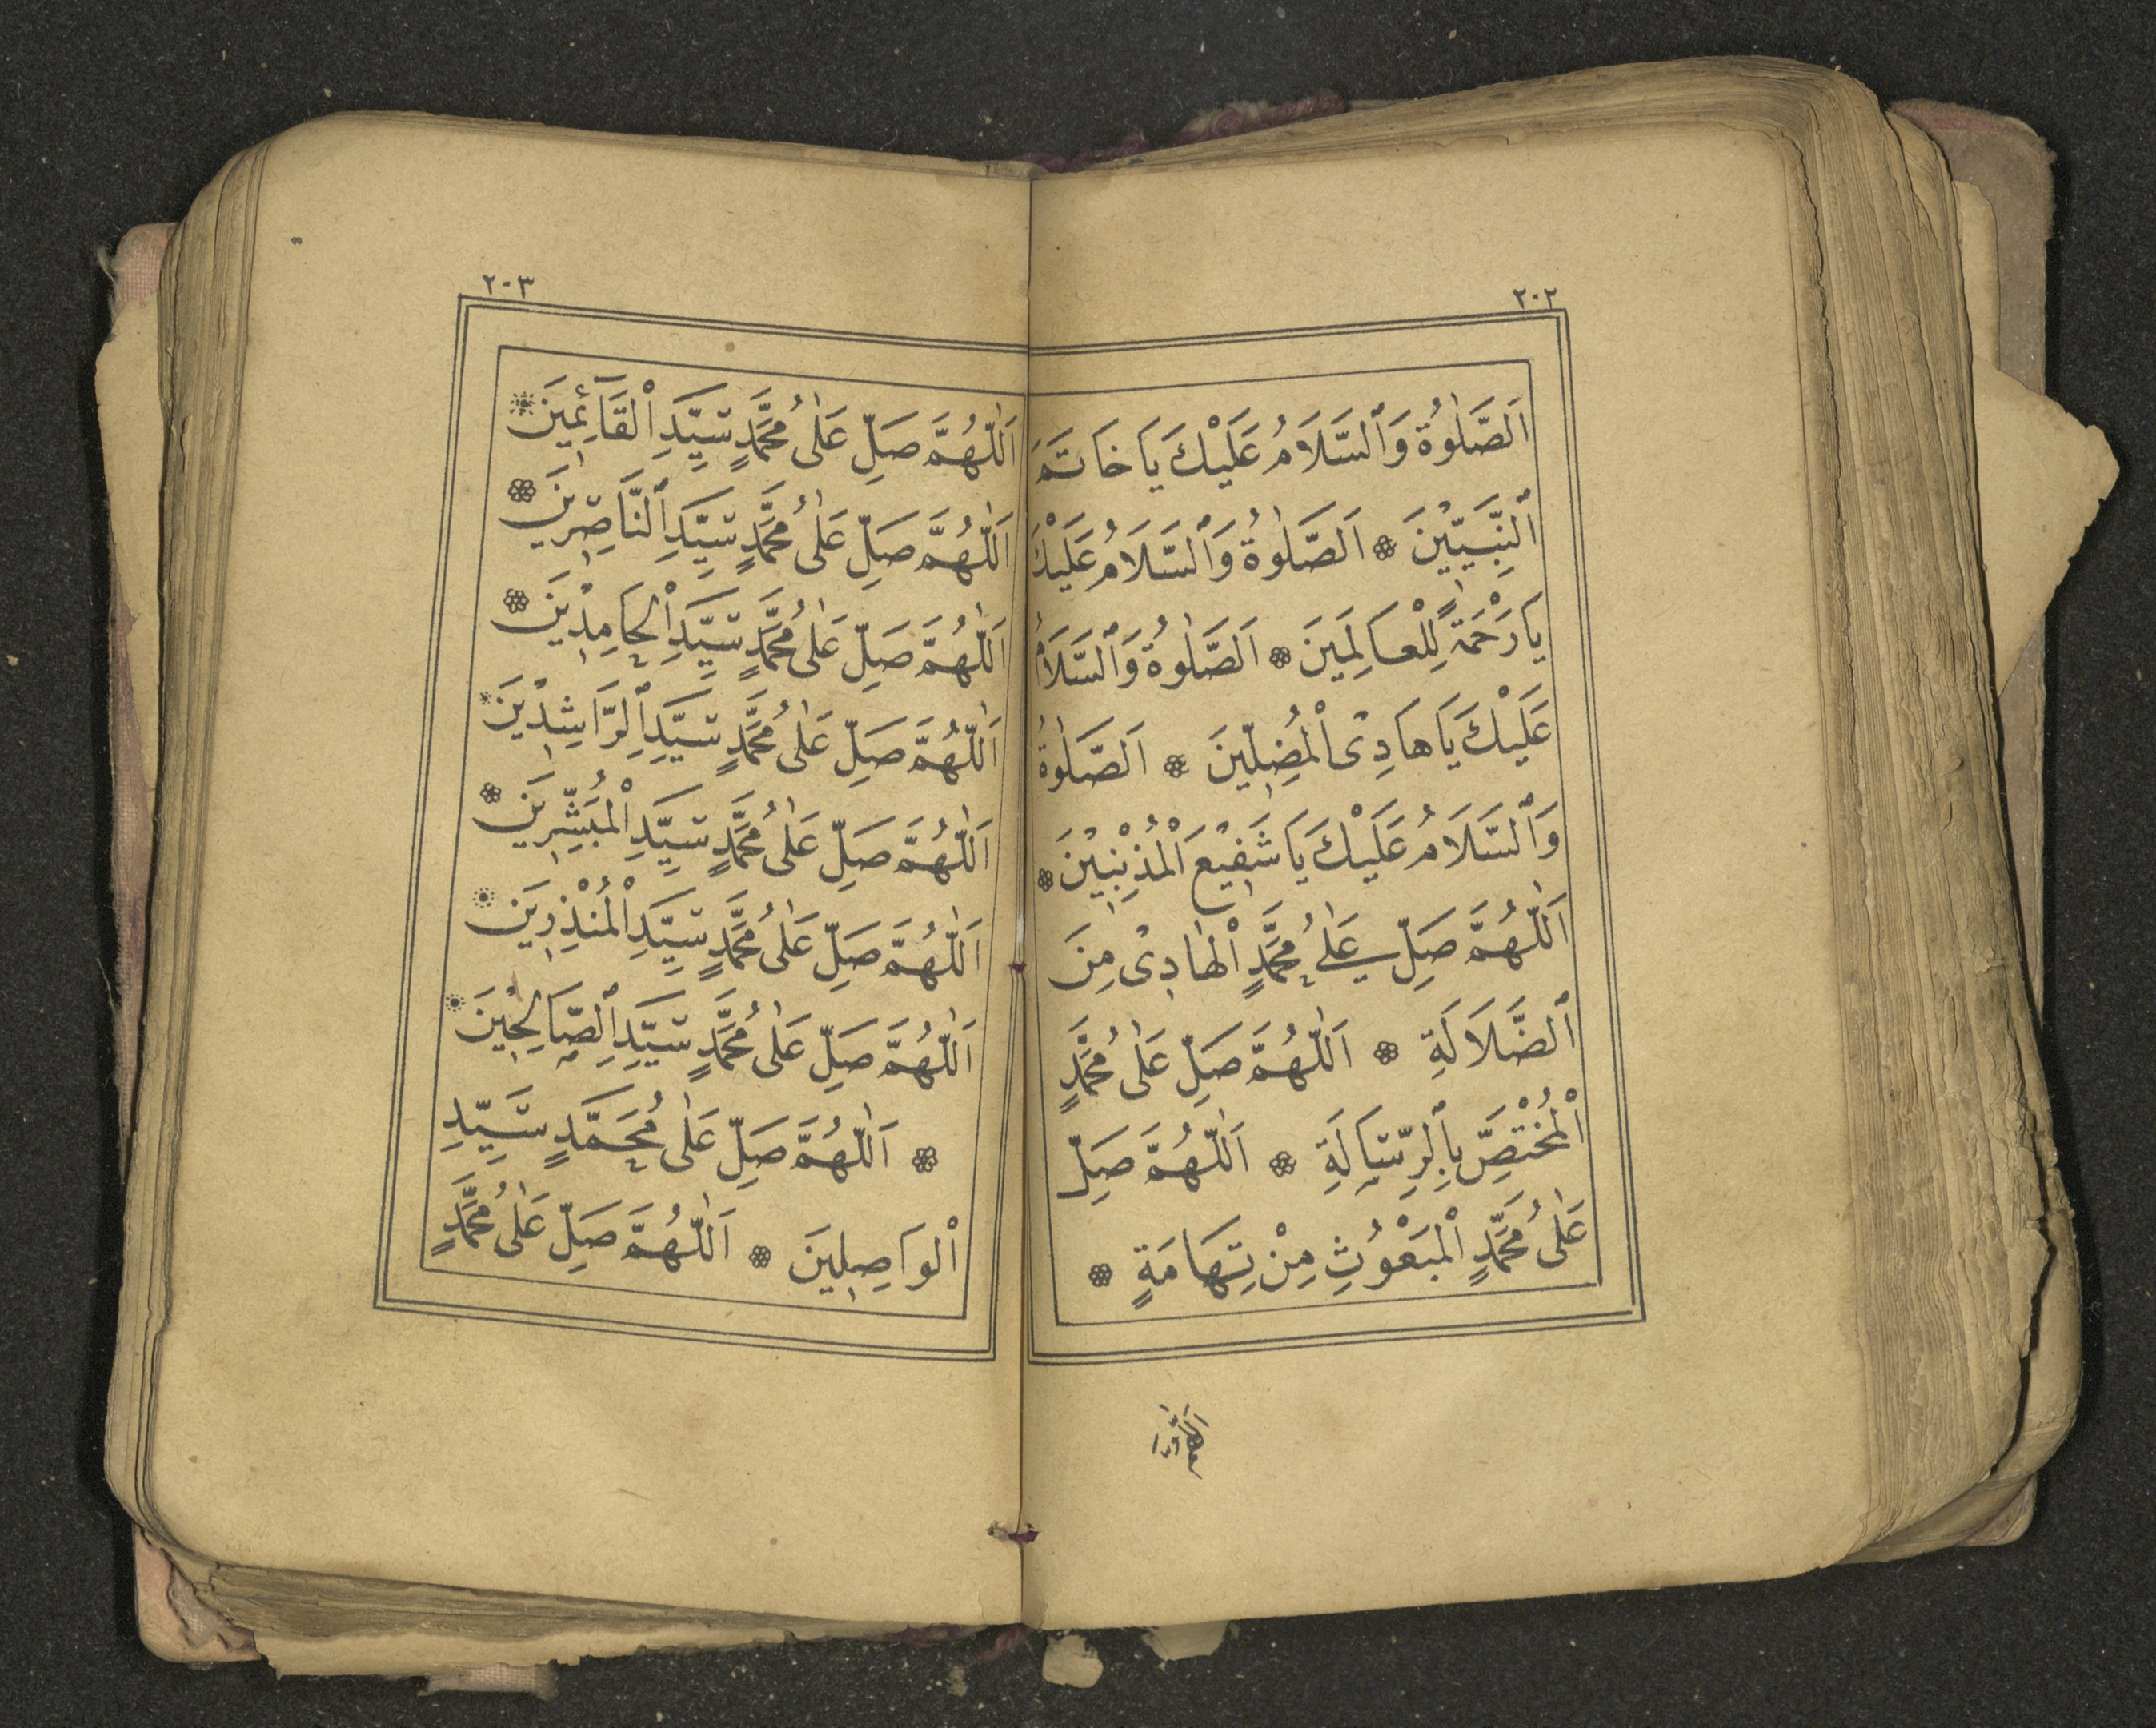 ٢٠٢
اَلصَّلٰوةُ وَٱلسَّلَامُ عَلَيْكَ يَا خَاتَمَ
ٱلنَّبِيّٖينَ ❁ اَلصَّلٰوةُ وَٱلسَّلَامُ عَلَيْكَ
يَا رَحْمَةً لِلْعَالَمِينَ ❁ اَلصَّلٰوةُ وَٱلسَّلَامُ
عَلَيْكَ يَا هَادِىَ الْمُضِلّٖينَ ❁ اَلصَّلٰوةُ
وَٱلسَّلَامُ عَلَيْكَ يَا شَفٖيعَ الْمُذْنِبٖينَ ❁
اَللّٰهُمَّ صَلِّ عَلٰى مُحَمَّدٍ الْهَادٖى مِنَ
ٱلضَّلَالَةِ ❁ اَللّٰهُمَّ صَلِّ عَلٰى مُحَمَّدٍ
الْمُخْتَصِّ بِٱلرِّسَالَةِ ❁ اَللّٰهُمَّ صَلِّ
عَلٰى مُحَمَّدٍ الْمَبْعُوثِ مِنْ تِهَامَةٍ ❁
اَللّٰهُمَّ
٢٠٣
اَللّٰهُمَّ صَلِّ عَلٰى مُحَمَّدٍ سَيِّدِ الْقَآئِمٖينَ ❁
اَللّٰهُمَّ صَلِّ عَلٰى مُحَمَّدٍ سَيِّدِ ٱلنَّاصِرٖينَ ❁
اَللّٰهُمَّ صَلِّ عَلٰى مُحَمَّدٍ سَيِّدِ الْحَامِدٖينَ ❁
اَللّٰهُمَّ صَلِّ عَلٰى مُحَمَّدٍ سَيِّدِ ٱلرَّاشِدٖينَ *
اَللّٰهُمَّ صَلِّ عَلٰى مُحَمَّدٍ سَيِّدِ الْمُبَشِّرٖينَ ❁
اَللّٰهُمَّ صَلِّ عَلٰى مُحَمَّدٍ سَيِّدِ الْمُنْذِرٖينَ ❁
اَللّٰهُمَّ صَلِّ عَلٰى مُحَمَّدٍ سَيِّدِ ٱلصَّالِحٖينَ ❁
❁ اَللّٰهُمَّ صَلِّ عَلٰى مُحَمَّدٍ سَيِّدِ
الْوَاصِلٖينَ ❁ اَللّٰهُمَّ صَلِّ عَلٰى مُحَمَّدٍ